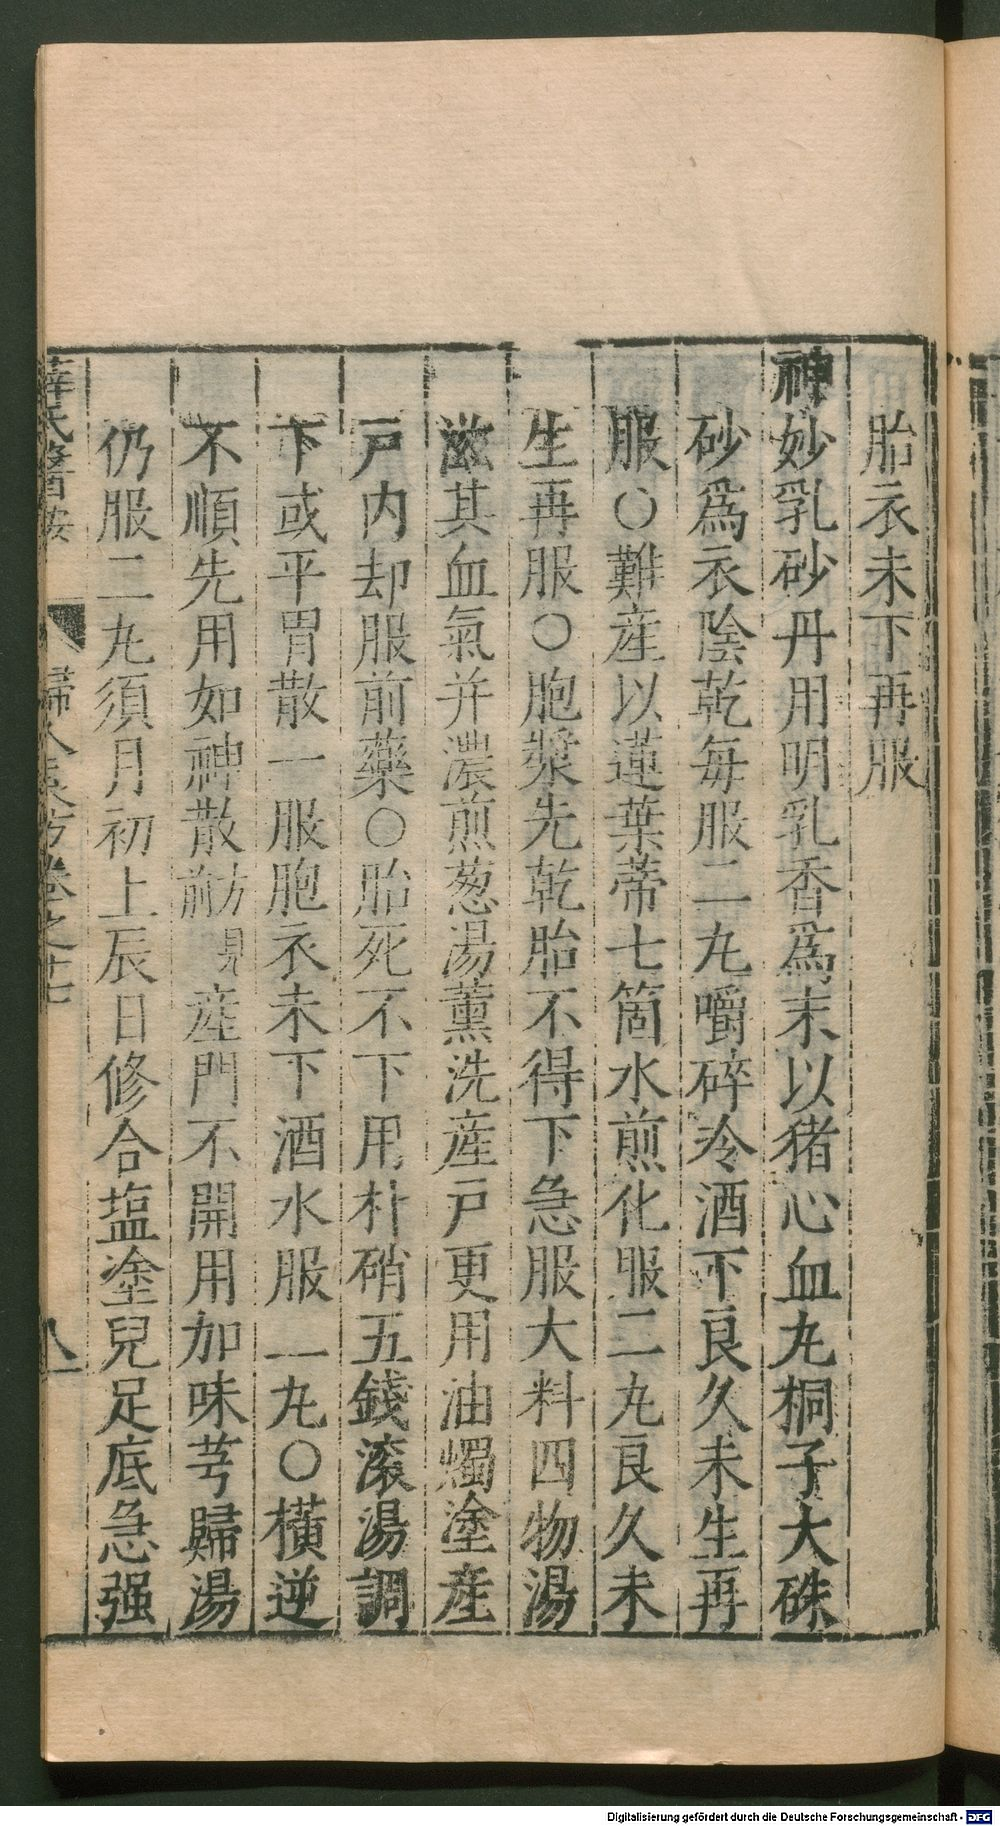 胎衣未下再服
神妙乳砂丹用明乳香爲末以猪心血丸桐子大硃
砂爲衣陰乾每服二丸嚼碎冷酒下良久未生再
服○難産以蓮葉蒂七箇水煎化服二丸良久未
生再服○胞漿先乾胎不得下急服大料四物湯
滋其血氣并濃煎葱湯薰洗産戸更用油燭塗産
戸内却服前藥○胎死不下用朴硝五錢滚湯調
下或平胃散一服胞衣未下酒水服一丸○橫逆
不順先用如神散方見前産門不開用加味芎歸湯
仍服二丸須月初上辰日修合塩塗兒足底急强
薛氏醫按 婦人良方卷之十七 八
Digitalisierung gefördert durch die Deutsche Forschungsgemeinschaft - DFG